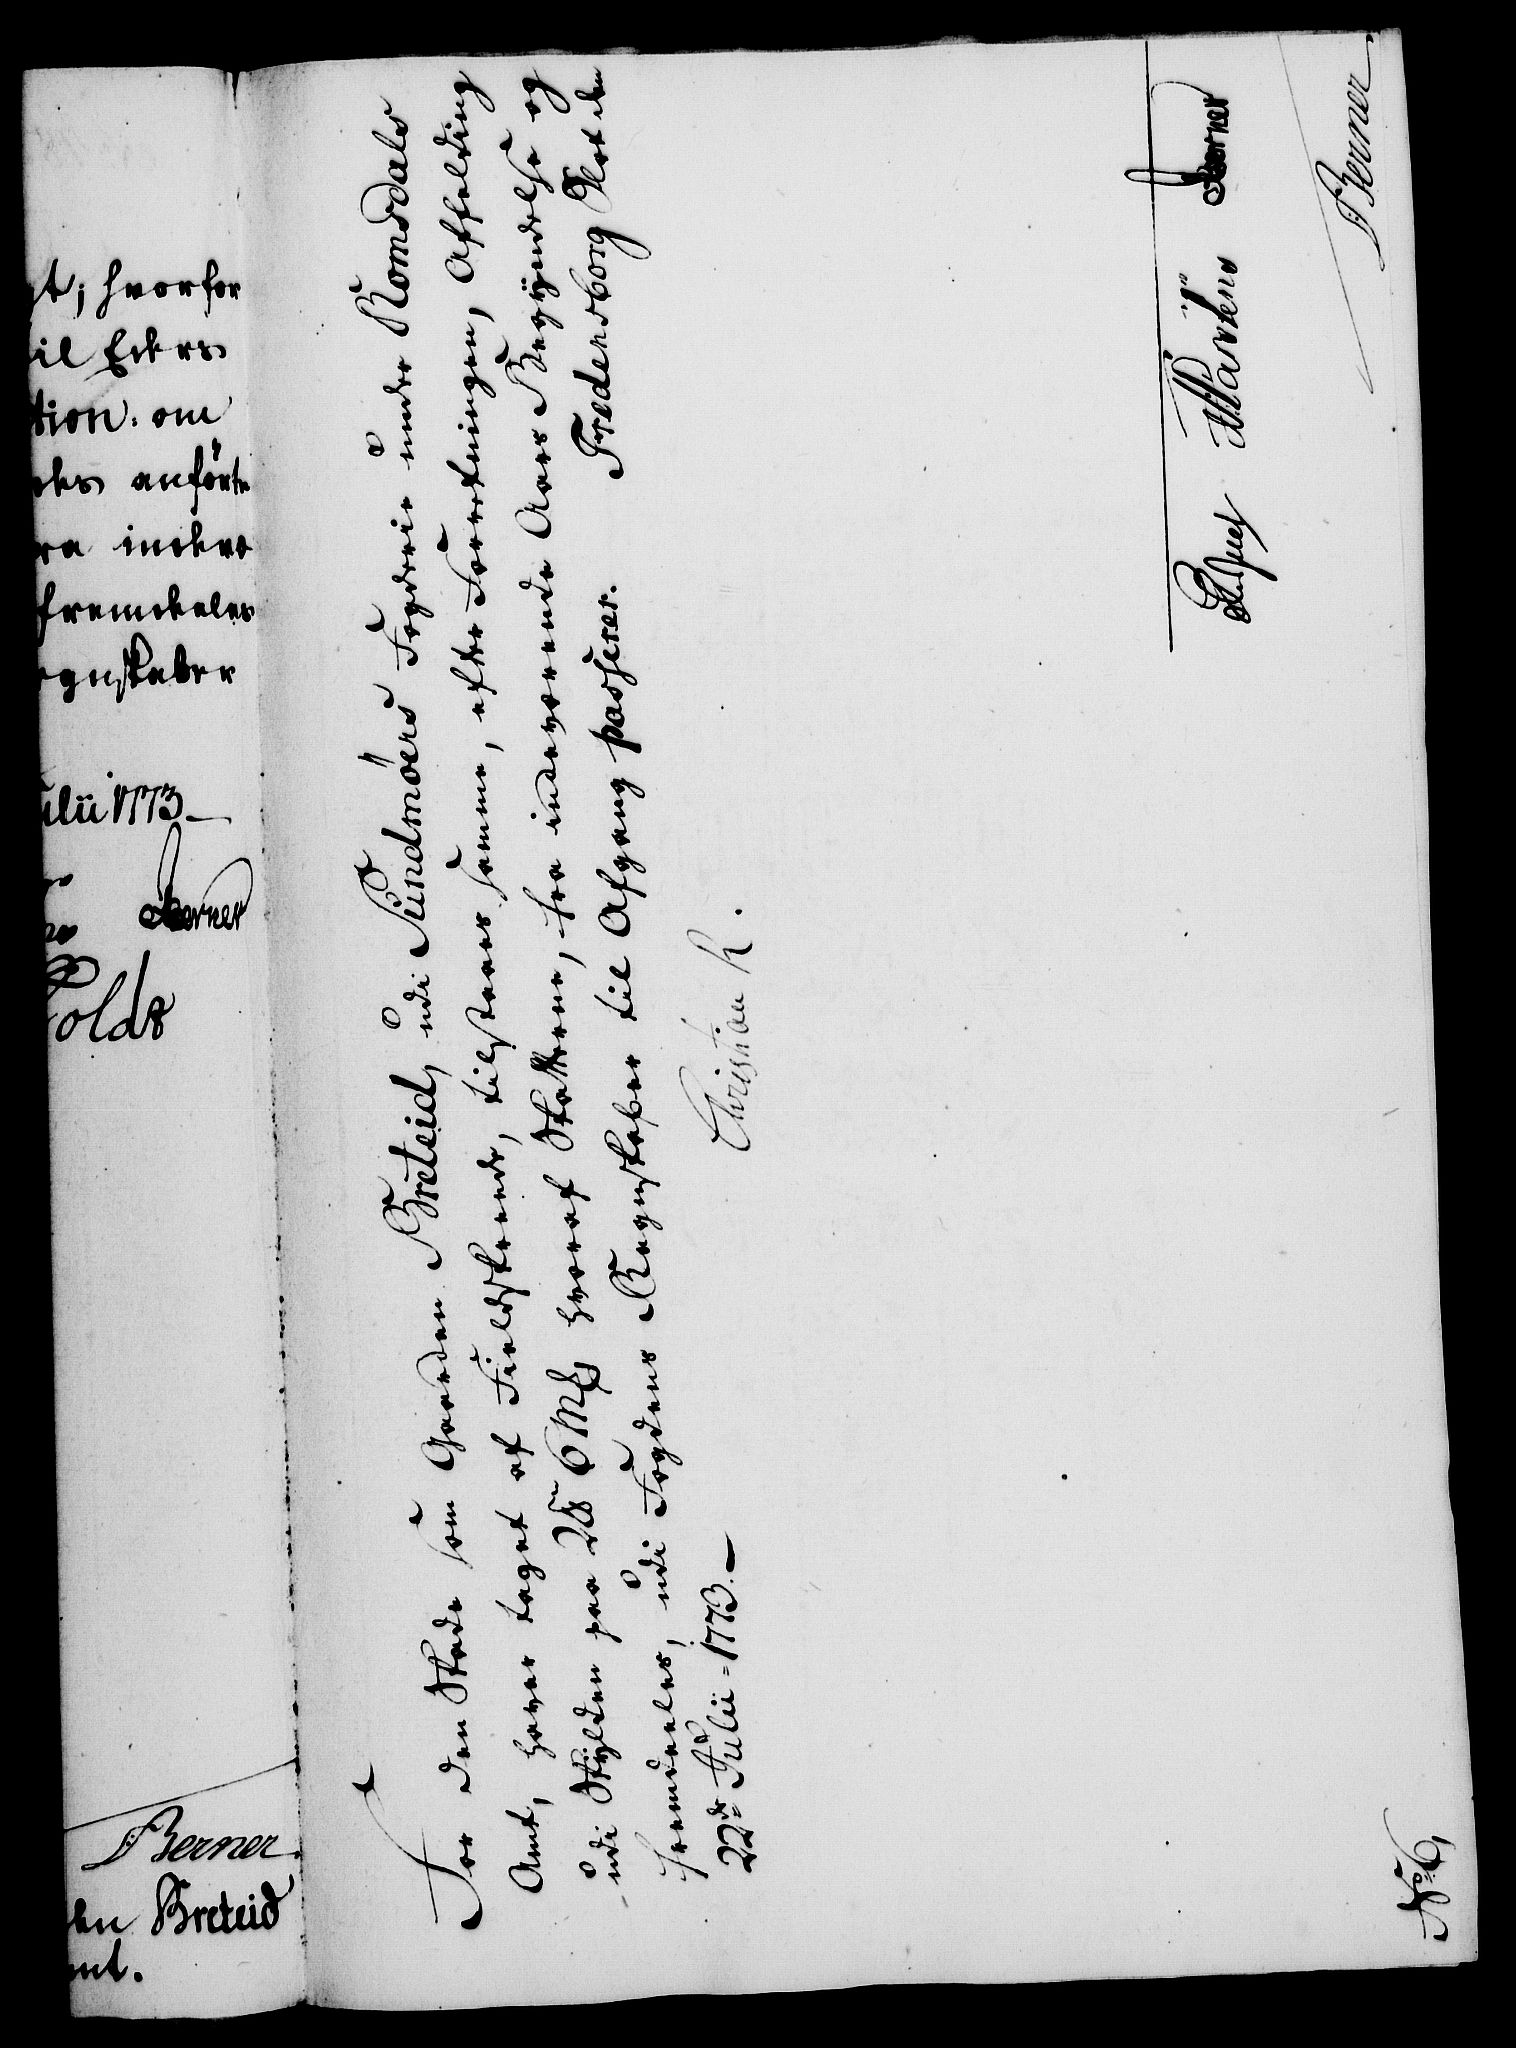 t; hvorfor
il Eders
tion om
anførte
fra indev
fremdeles
egnskaber
ulii 1773
Berner
Berner
en Breteid
mt.
For den Skade som Gaarden Breteid, udi Sundmöers Fogderie under Romsdals
Amt, haver taget af Fieldskreede, tilstaaes samme, efter Forretningen, Affelding
udi Skylden paa 2 6 hvoraf Skatterne, fra indeværende Aars Begyndelse og
fremdeles, udi Fogdens Regnskaber til Afgang passerer. Fredensborg Slot den
22de Julii 1773.
Christian R.
Martens Berner
Berner
No 6,